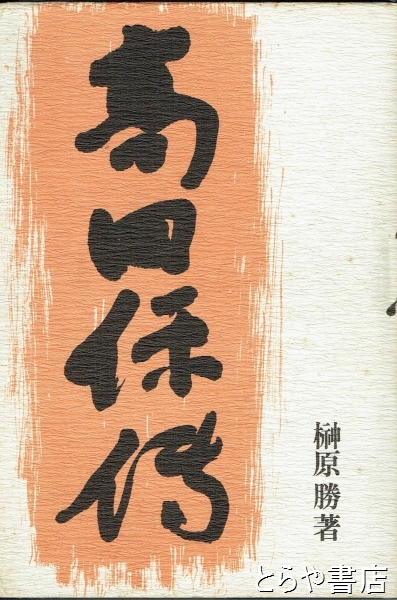 高田保傳
榊原勝著
とらや書店